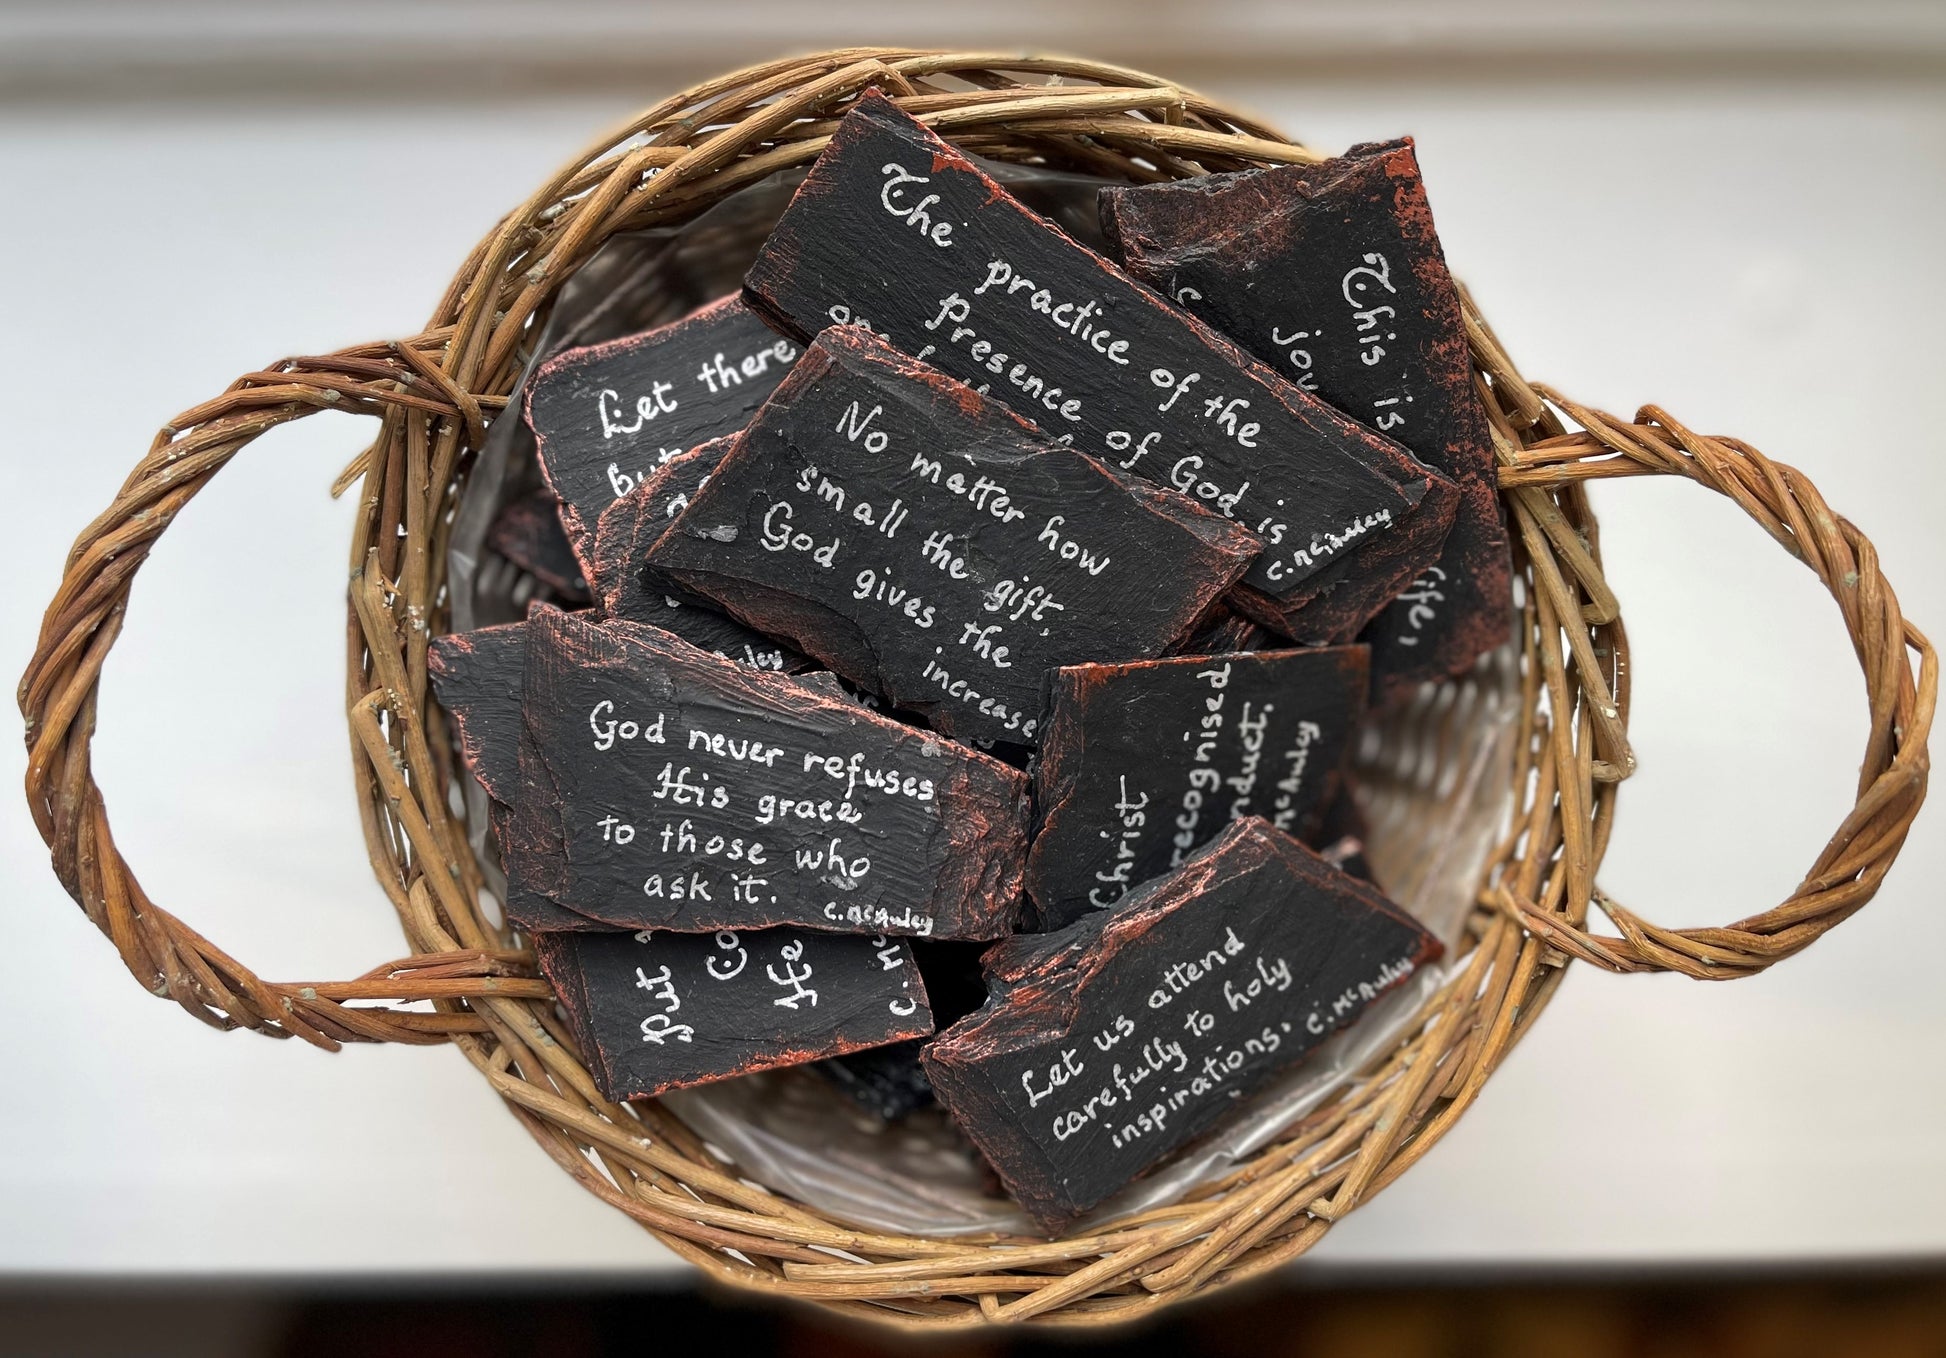 The
practice of the
Presence of God is
C. McAuley
This is
Let there
but
No matter how
small the gift,
God gives the
increase
God never refuses
His grace
to those who
ask it.
C. McAuley
Christ
recognised
McAuley
Put
He
C.
Let us attend
carefully to holy
inspirations.
C. McAuley